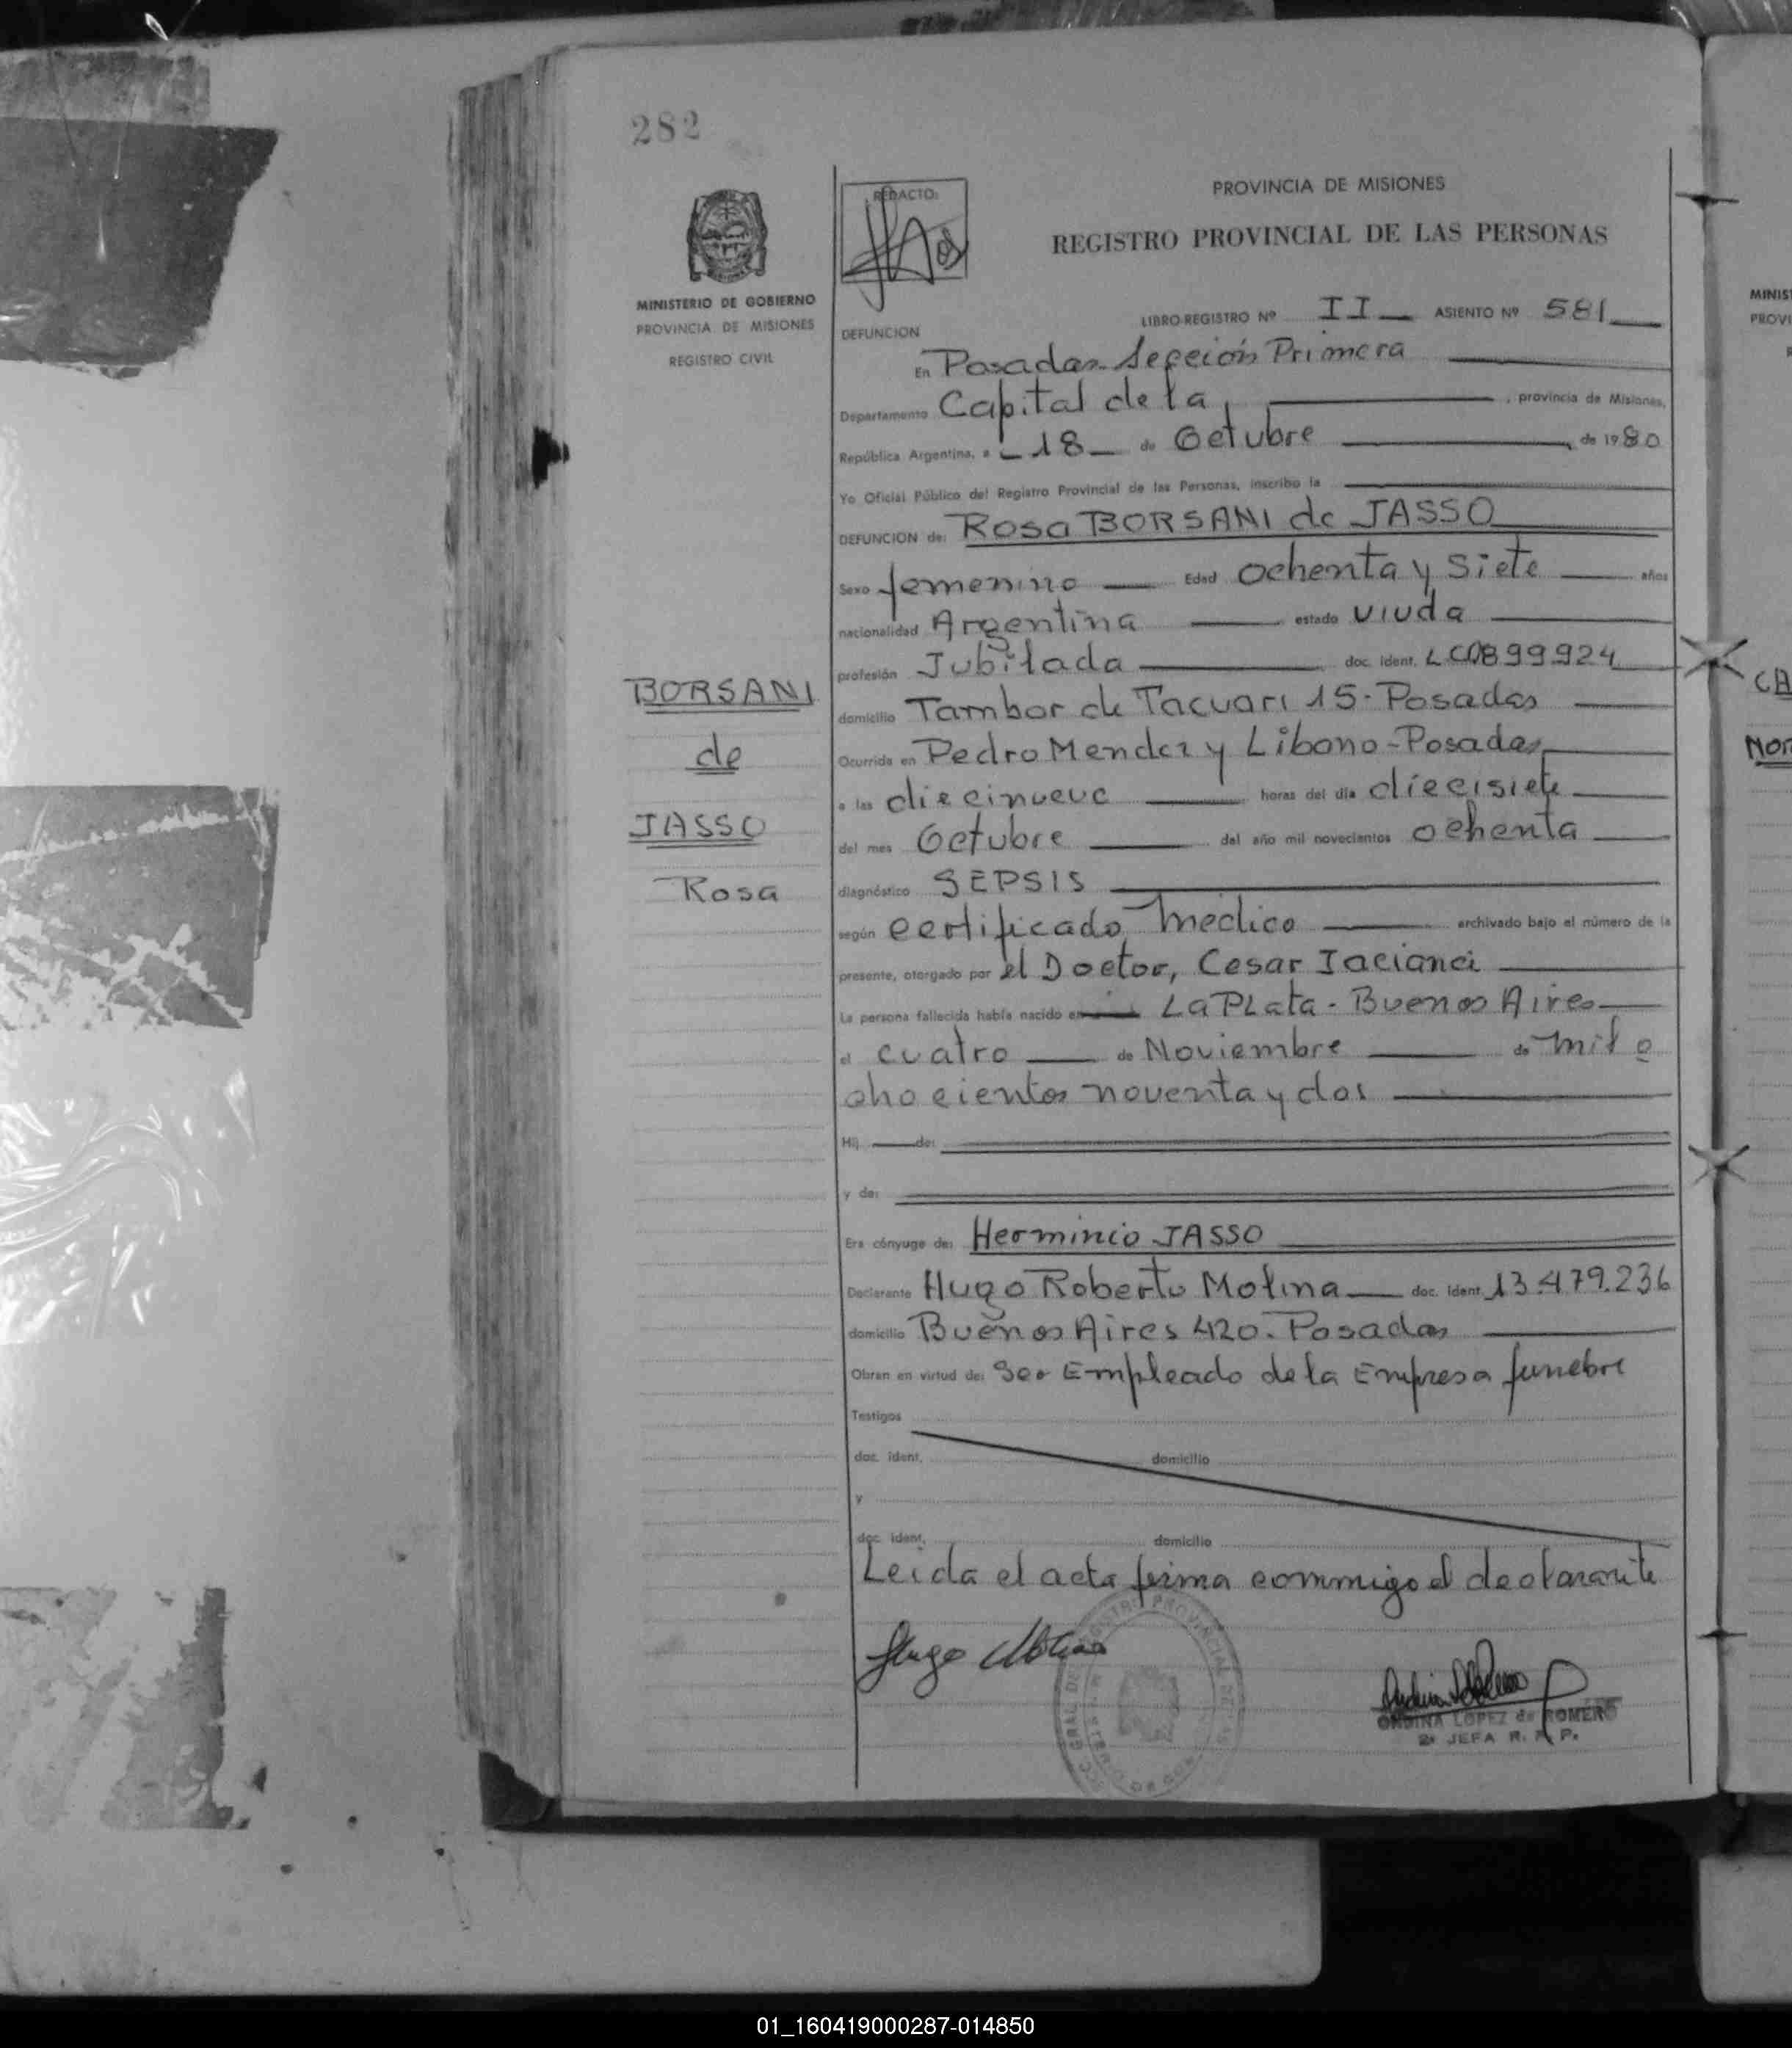 282
MINISTERIO DE GOBIERNO
PROVINCIA DE MISIONES
REGISTRO CIVIL
REDACTO:
PROVINCIA DE MISIONES
REGISTRO PROVINCIAL DE LAS PERSONAS
LIBRO-REGISTRO Nº II ASIENTO Nº 581
DEFUNCION
En Posadas-Sección Primera
Departamento Capital de la , provincia de Misiones,
República Argentina, a 18 de Octubre de 1980
Yo Oficial Público del Registro Provincial de las Personas, inscribo la
DEFUNCION de: Rosa BORSANI de JASSO
Sexo femenino Edad ochenta y siete años
nacionalidad Argentina estado viuda
profesión Jubilada doc. ident. LC0899924
domicilio Tambor de Tacuari 15-Posadas
Ocurrida en Pedro Mendez y Libono-Posadas
a las diecinueve horas del día diecisiete
del mes Octubre del año mil novecientos ochenta
diagnóstico SEPSIS
según certificado médico archivado bajo el número de la
presente, otorgado por el Doctor, Cesar Iacianci
La persona fallecida había nacido en La PLata-Buenos Aires
el cuatro de Noviembre de mil o
ohocientos noventa y dos
Hij de:
y de:
Era cónyuge de: Herminio JASSO
Declarante Hugo Roberto Molina doc. ident. 13.479.236
domicilio Buenos Aires 420. Posadas
Obran en virtud de: Ser Empleado de la Empresa funebre
Testigos
doc. ident. domicilio
y
doc. ident. domicilio
Leida el acta firma conmigo el declarante
Hugo Molina
ONDINA LOPEZ de ROMERO
2ª JEFA R. P. P.
BORSANI
de
JASSO
Rosa
MINIS
PROVI
R
CA
NOR
01_160419000287-014850